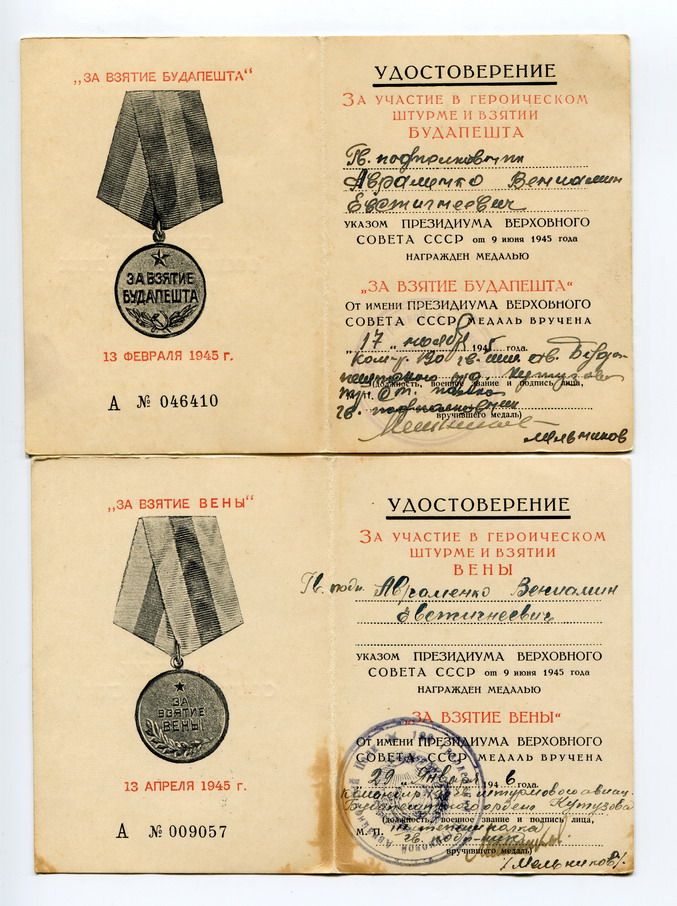 „ЗА ВЗЯТИЕ БУДАПЕШТА“
ЗА ВЗЯТИЕ
БУДАПЕШТА
13 ФЕВРАЛЯ 1945 г.
А № 046410
УДОСТОВЕРЕНИЕ
ЗА УЧАСТИЕ В ГЕРОИЧЕСКОМ
ШТУРМЕ И ВЗЯТИИ
БУДАПЕШТА
Гв. подполковник
Авраменко Вениамин
Евстигнеевич
УКАЗОМ ПРЕЗИДИУМА ВЕРХОВНОГО
СОВЕТА СССР от 9 июня 1945 года
НАГРАЖДЕН МЕДАЛЬЮ
„ЗА ВЗЯТИЕ БУДАПЕШТА“
От имени ПРЕЗИДИУМА ВЕРХОВНОГО
СОВЕТА СССР МЕДАЛЬ ВРУЧЕНА
„17“ ноября 1945 года.
гв.
(должность, военное звание и подпись лица,
гв. подполковник
вручившего медаль)
Мельников
„ЗА ВЗЯТИЕ ВЕНЫ“
ЗА
ВЗЯТИЕ
ВЕНЫ
13 АПРЕЛЯ 1945 г.
А № 009057
УДОСТОВЕРЕНИЕ
ЗА УЧАСТИЕ В ГЕРОИЧЕСКОМ
ШТУРМЕ И ВЗЯТИИ
ВЕНЫ
Гв. подп. Авраменко Вениамин
Евстигнеевич
УКАЗОМ ПРЕЗИДИУМА ВЕРХОВНОГО
СОВЕТА СССР от 9 июня 1945 года
НАГРАЖДЕН МЕДАЛЬЮ
„ЗА ВЗЯТИЕ ВЕНЫ“
От имени ПРЕЗИДИУМА ВЕРХОВНОГО
СОВЕТА СССР МЕДАЛЬ ВРУЧЕНА
„29“ Января 1946 года.
штурмового авиац.
Будапештского ордена Кутузова
(должность, военное звание и подпись лица,
М. П.
вручившего медаль)
/Мельников/